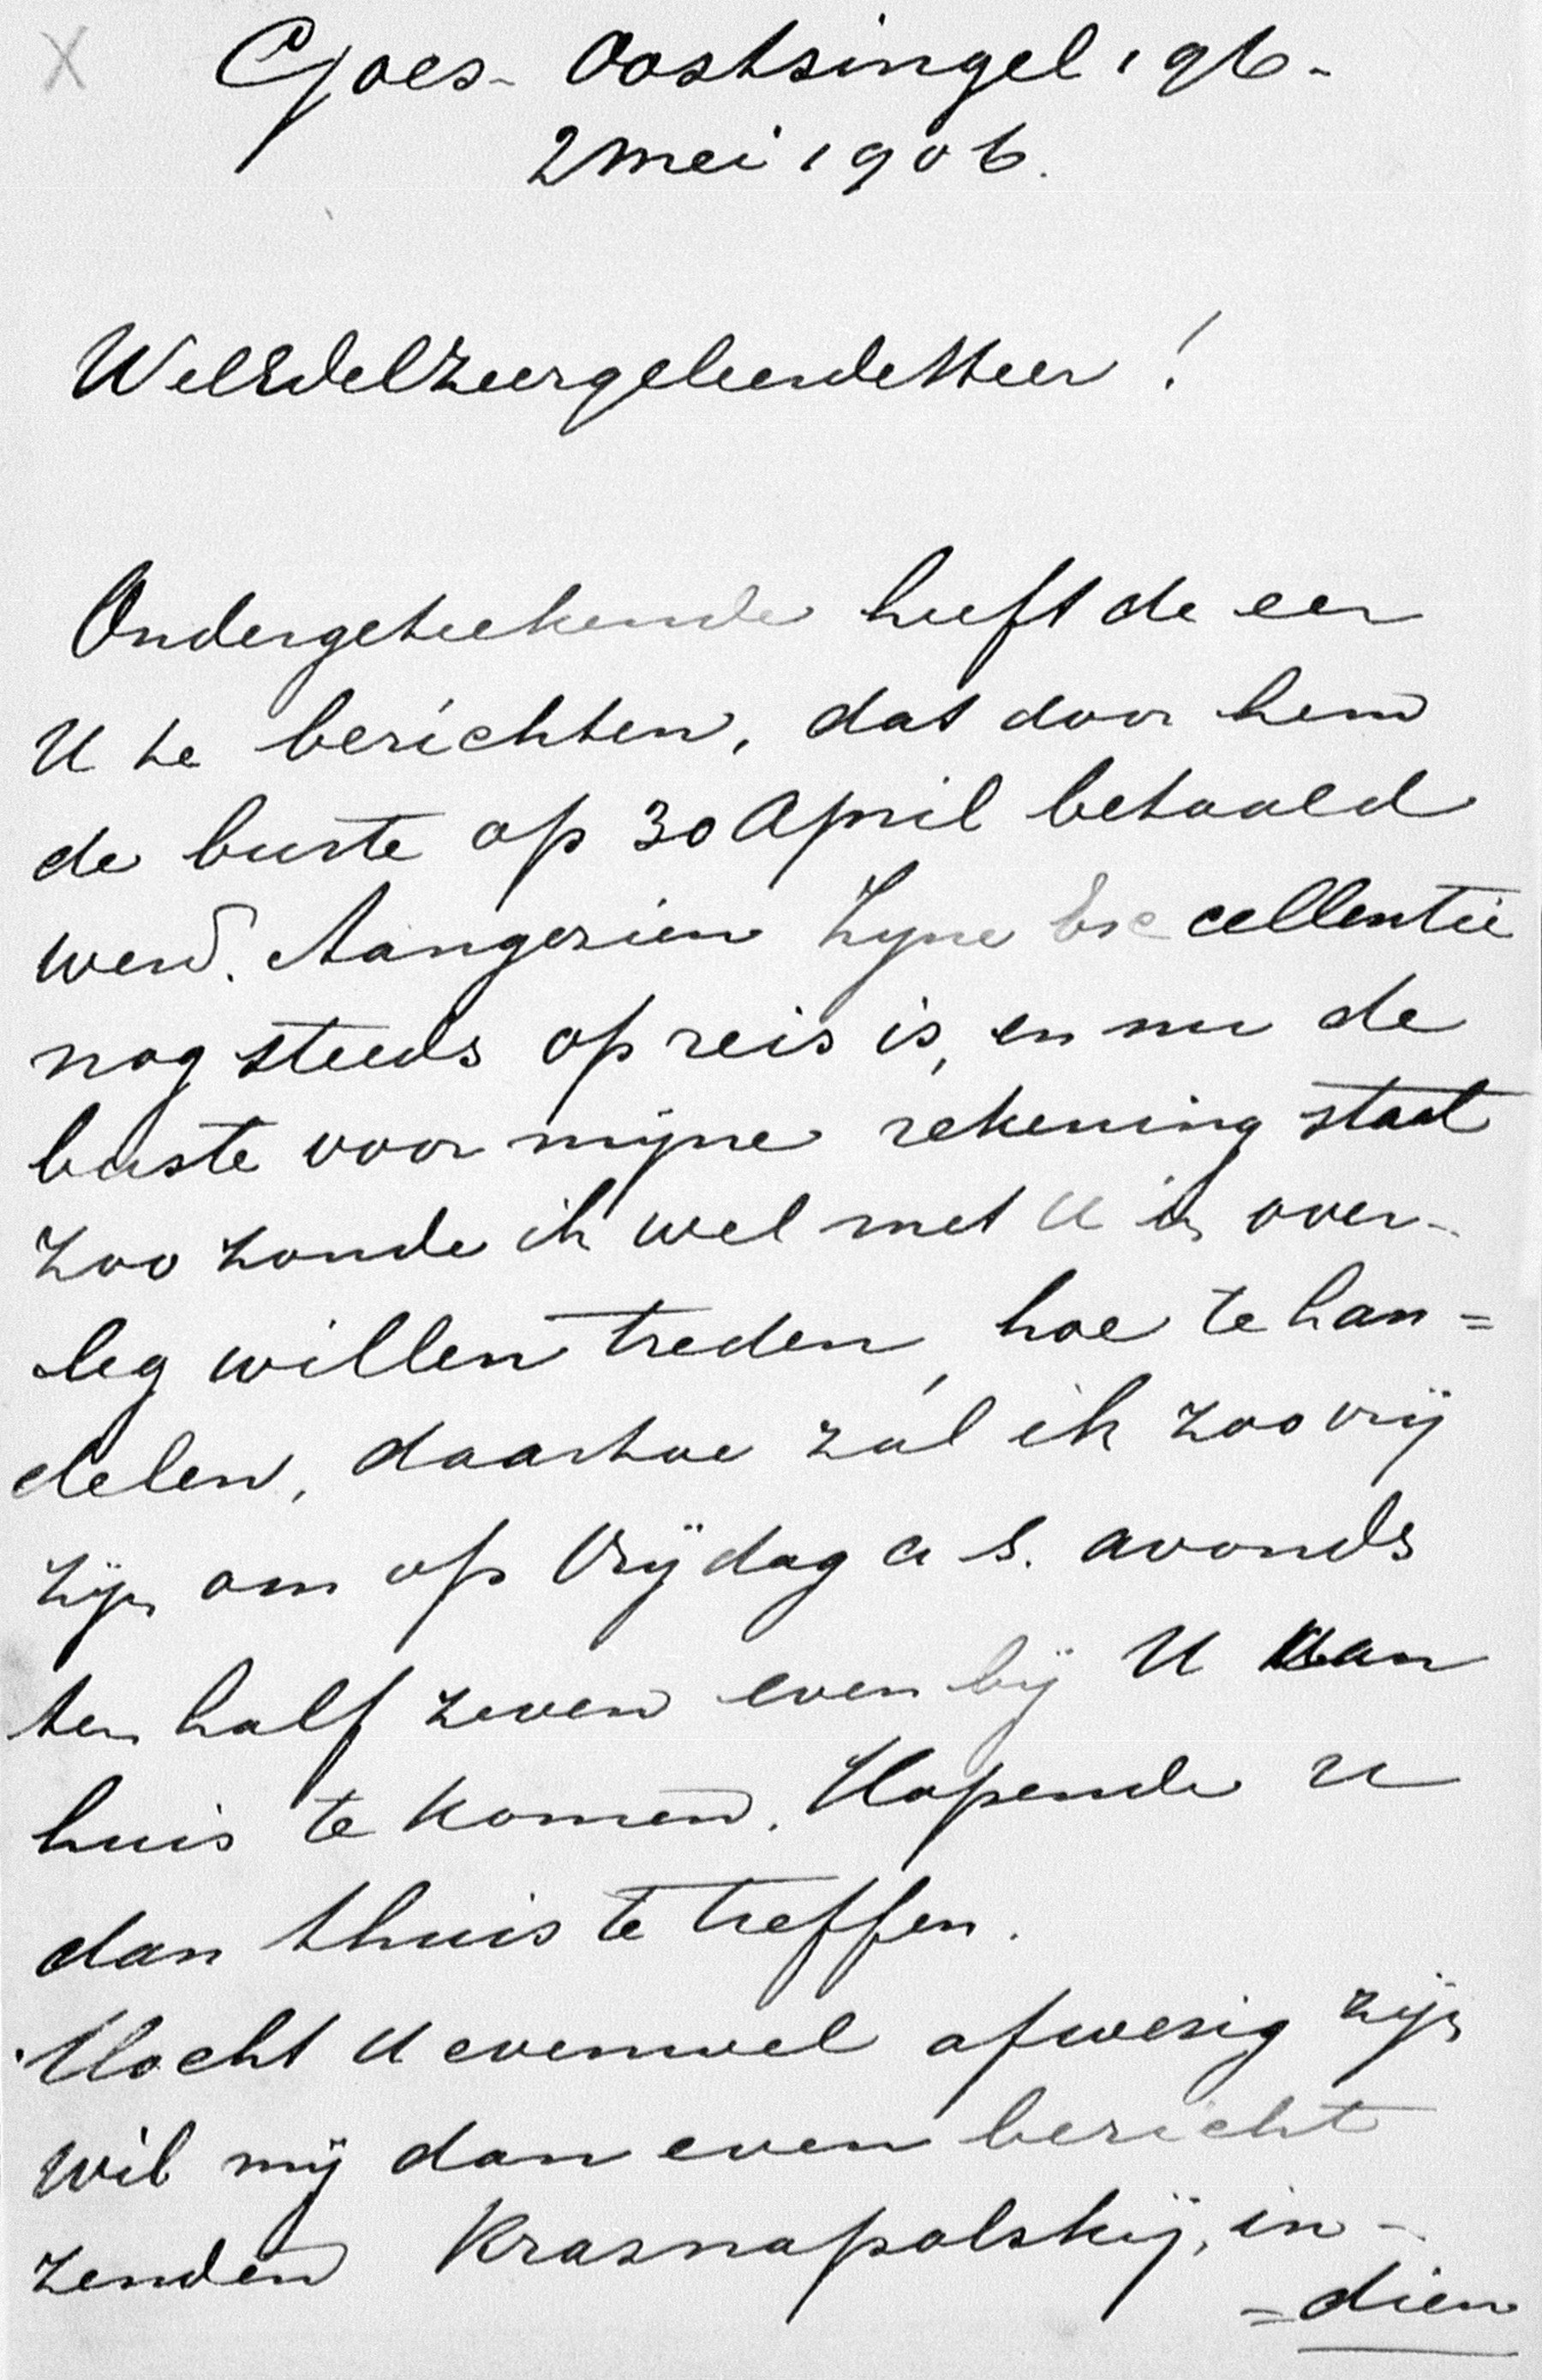 X
Goes - Oostsingel 196 -
2 mei 1906.
WelEdelZeergeleerdeHeer !
Ondergeteekende heeft de eer
U te berichten, dat door hem
de buste op 30 April betaald
werd. Aangezien Zyne Excellentie
nog steeds op reis is, en nu de
buste voor mijne rekening staat
zoo zoude ik wel met U in over-
leg willen treden, hoe te han=
delen, daartoe zal ik zoo vrij
zijn om op Vrijdag a s. avonds
ten half zeven even bij U aan
huis te komen. Hopende U
dan thuis te treffen.
Mocht U evenwel afwezig zijn
wil mij dan even bericht
zenden Krasnapolskij, in-
=dien